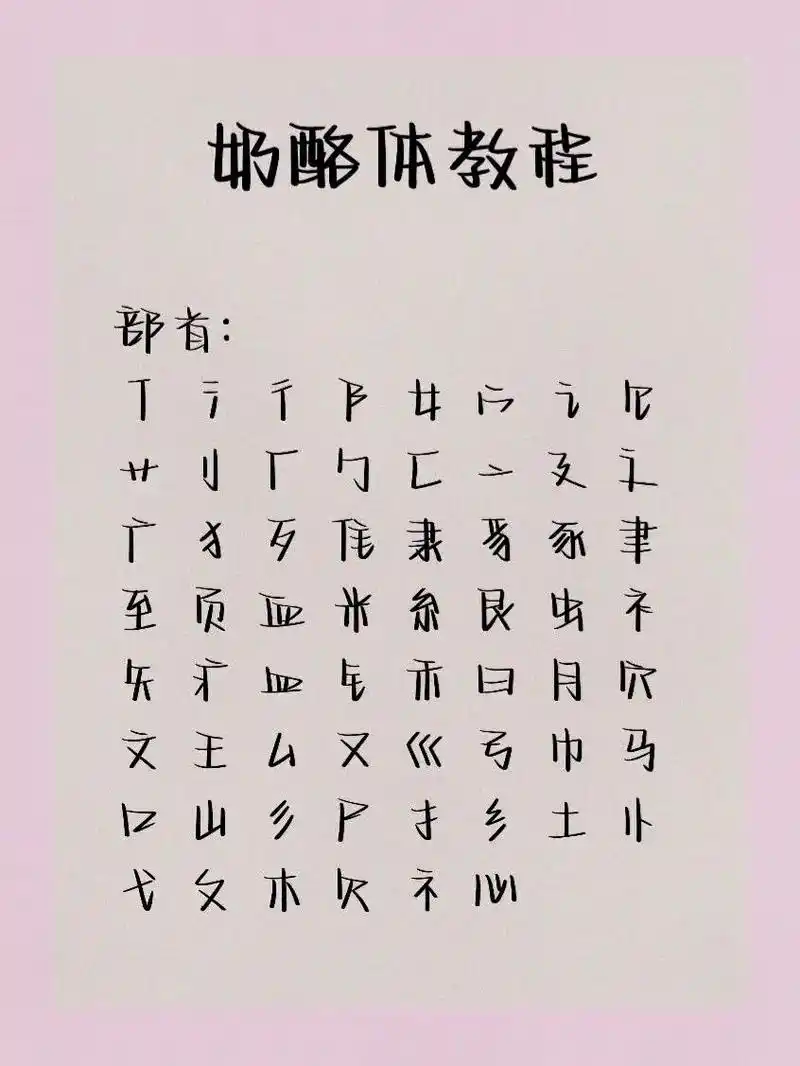 奶酪体教程
部首：
亻 氵 彳 阝 女 宀 讠
艹 刂 厂 勹 匚 亠 廴 辶
广 犭 歹 隹 隶 豸 豕 聿
至 页 血 米 糸 艮 虫 礻
矢 疒 皿 钅 禾 曰 月 穴
文 王 厶 又 巛 弓 巾 马
口 山 彡 尸 扌 纟 土 卜
弋 攵 木 欠 礻 心